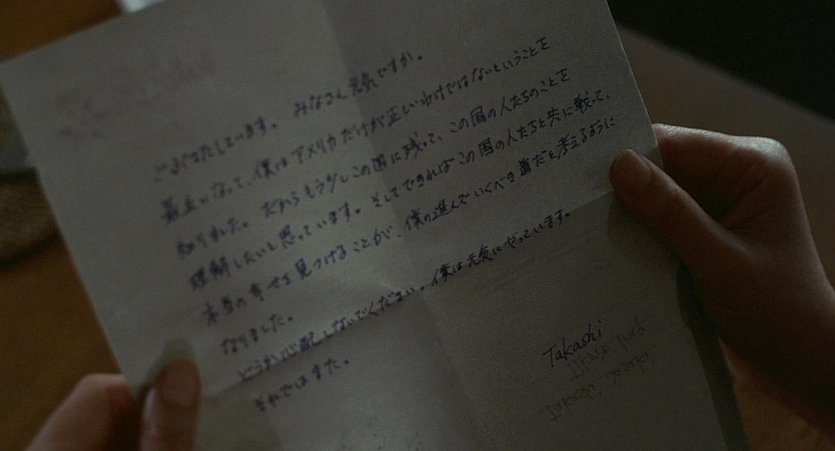 ごぶさたしています。 みなさん元気ですか。
最近になって、僕はアメリカだけが正しいわけではないということを
知りました。 だからもう少しこの国に残って、この国の人たちのことを
理解したいと思っています。そしてできればこの国の人たちと共に戦って、
本当の幸せを見つけることが、僕の選んでいくべき道だと考えるように
なりました。
どうか心配しないでください。僕は元気にやっています。
それではまた。
Takashi